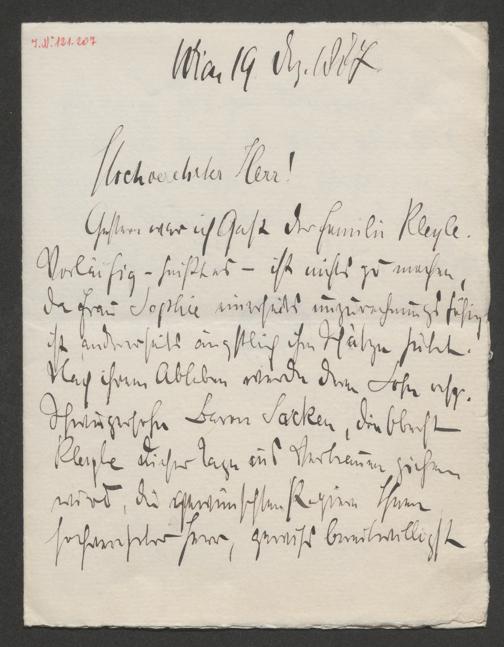 J. N: 121.207
Wien 19 Dez. 1887
Hochverehrter Herr!
Gestern war ich Gast der Familie Kleyle.
Vorläufig – heißt es – ist nichts zu machen,
da Frau Sophie einerseits unzurechnungsfähig
ist, andererseits ängstlich ihre Schätze hütet.
Nach ihrem Ableben werde deren Sohn resp.
Schwiegersohn Baron Sacken, den Obercht
Kleyle dieser Tage ins Vertrauen ziehen
wird, die gewünschten Papiere Ihnen,
hochverehrter Herr, gewiß bereitwilligst